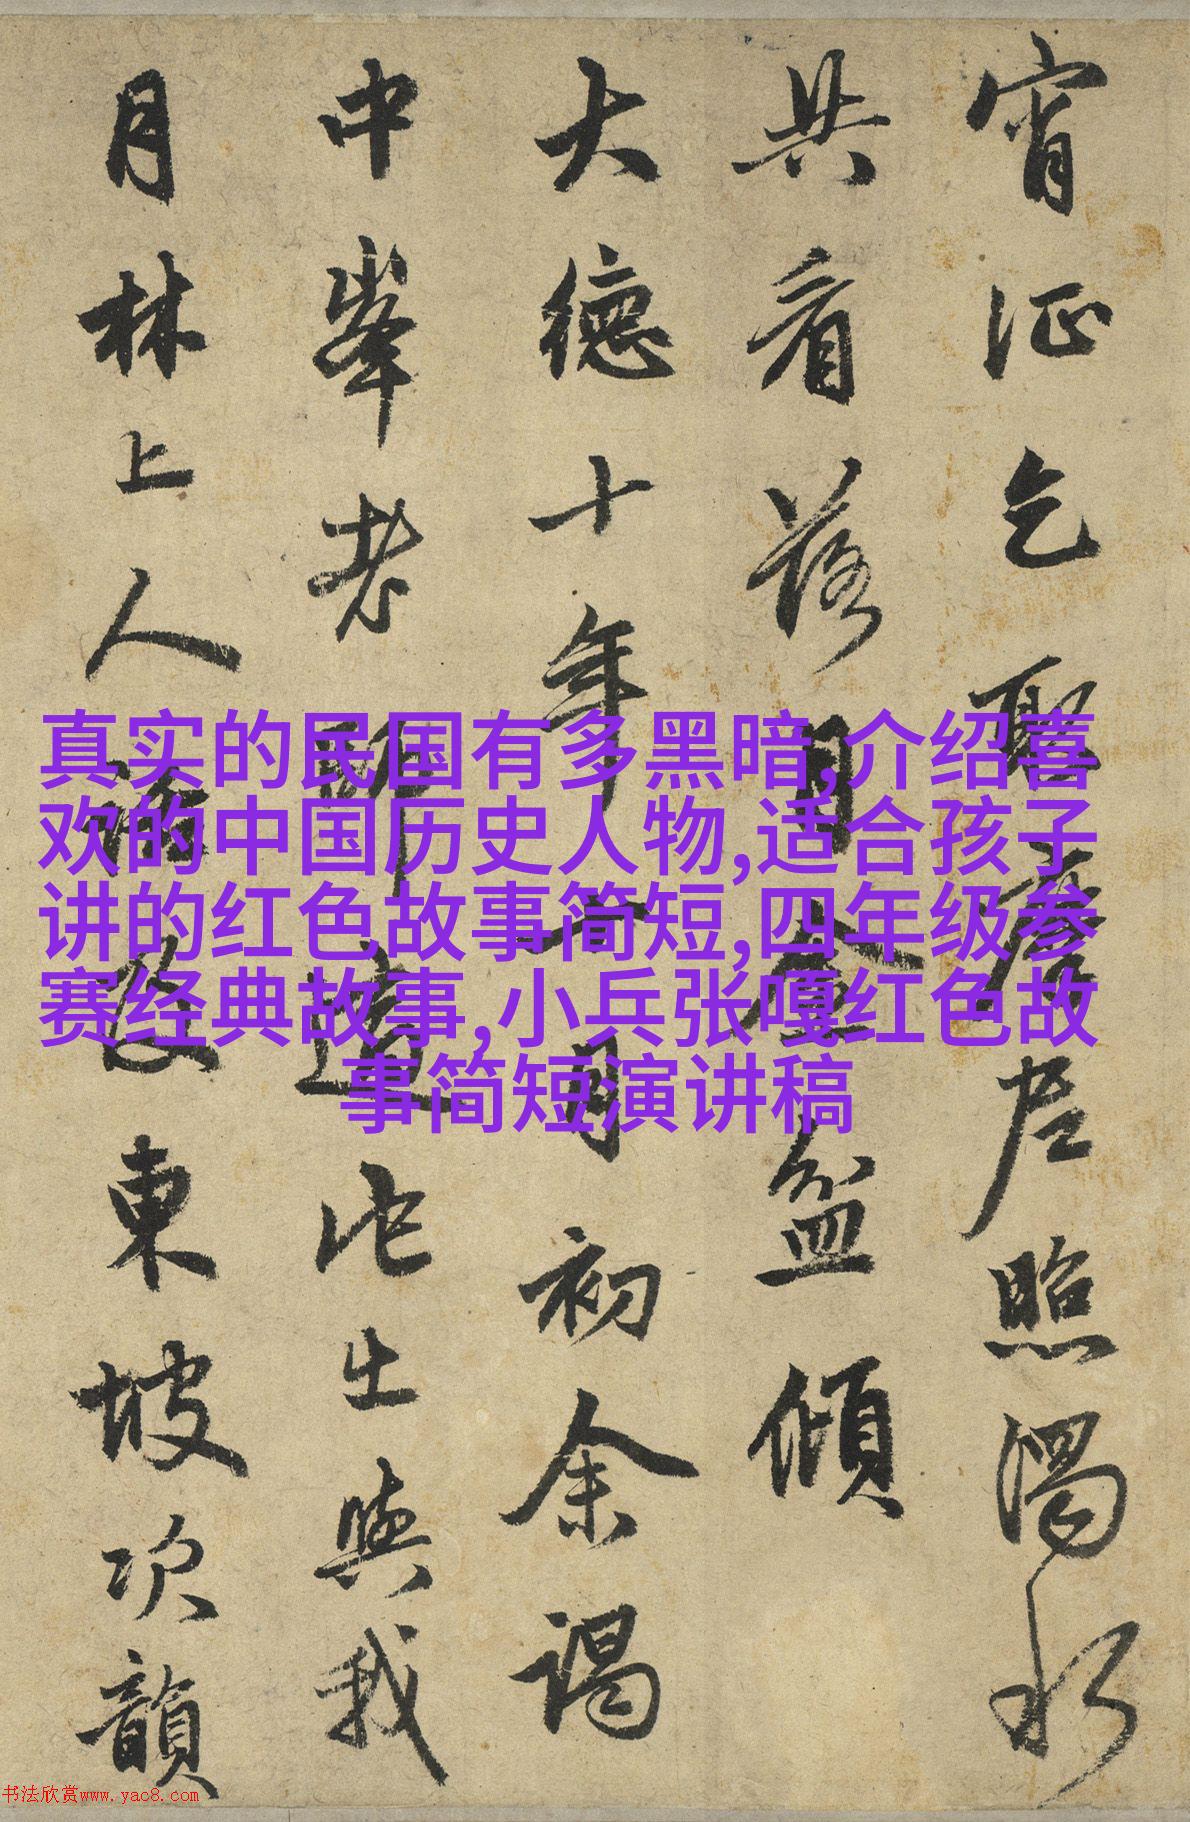 宵征乞取摩尼照濁水
共看落月金盆傾
大德十年十一月初余謁
中峯老師適他出與我
月林上人語及東坡次韻
真实的民国有多黑暗,介绍喜
欢的中国历史人物,适合孩子
讲的红色故事简短,四年级参
赛经典故事,小兵张嘎红色故
事简短演讲稿
书法欣赏www.yac8.com